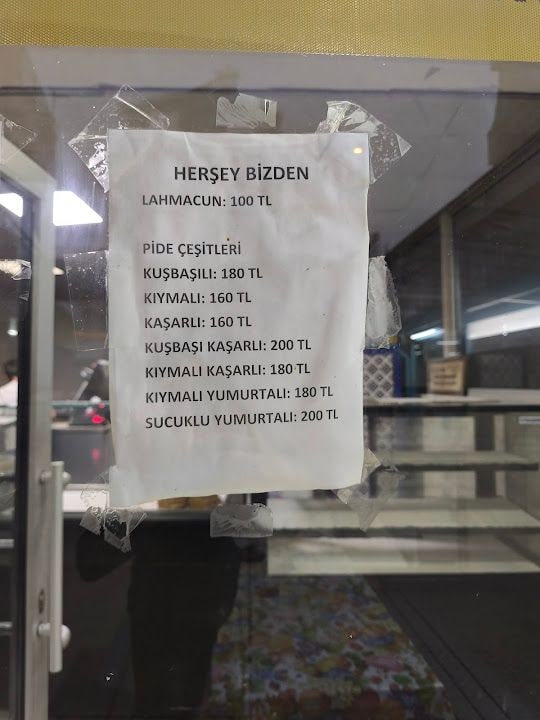 HERŞEY BİZDEN
LAHMACUN: 100 TL
PİDE ÇEŞİTLERİ
KUŞBAŞILI: 180 TL
KIYMALI: 160 TL
KAŞARLI: 160 TL
KUŞBAŞI KAŞARLI: 200 TL
KIYMALI KAŞARLI: 180 TL
KIYMALI YUMURTALI: 180 TL
SUCUKLU YUMURTALI: 200 TL